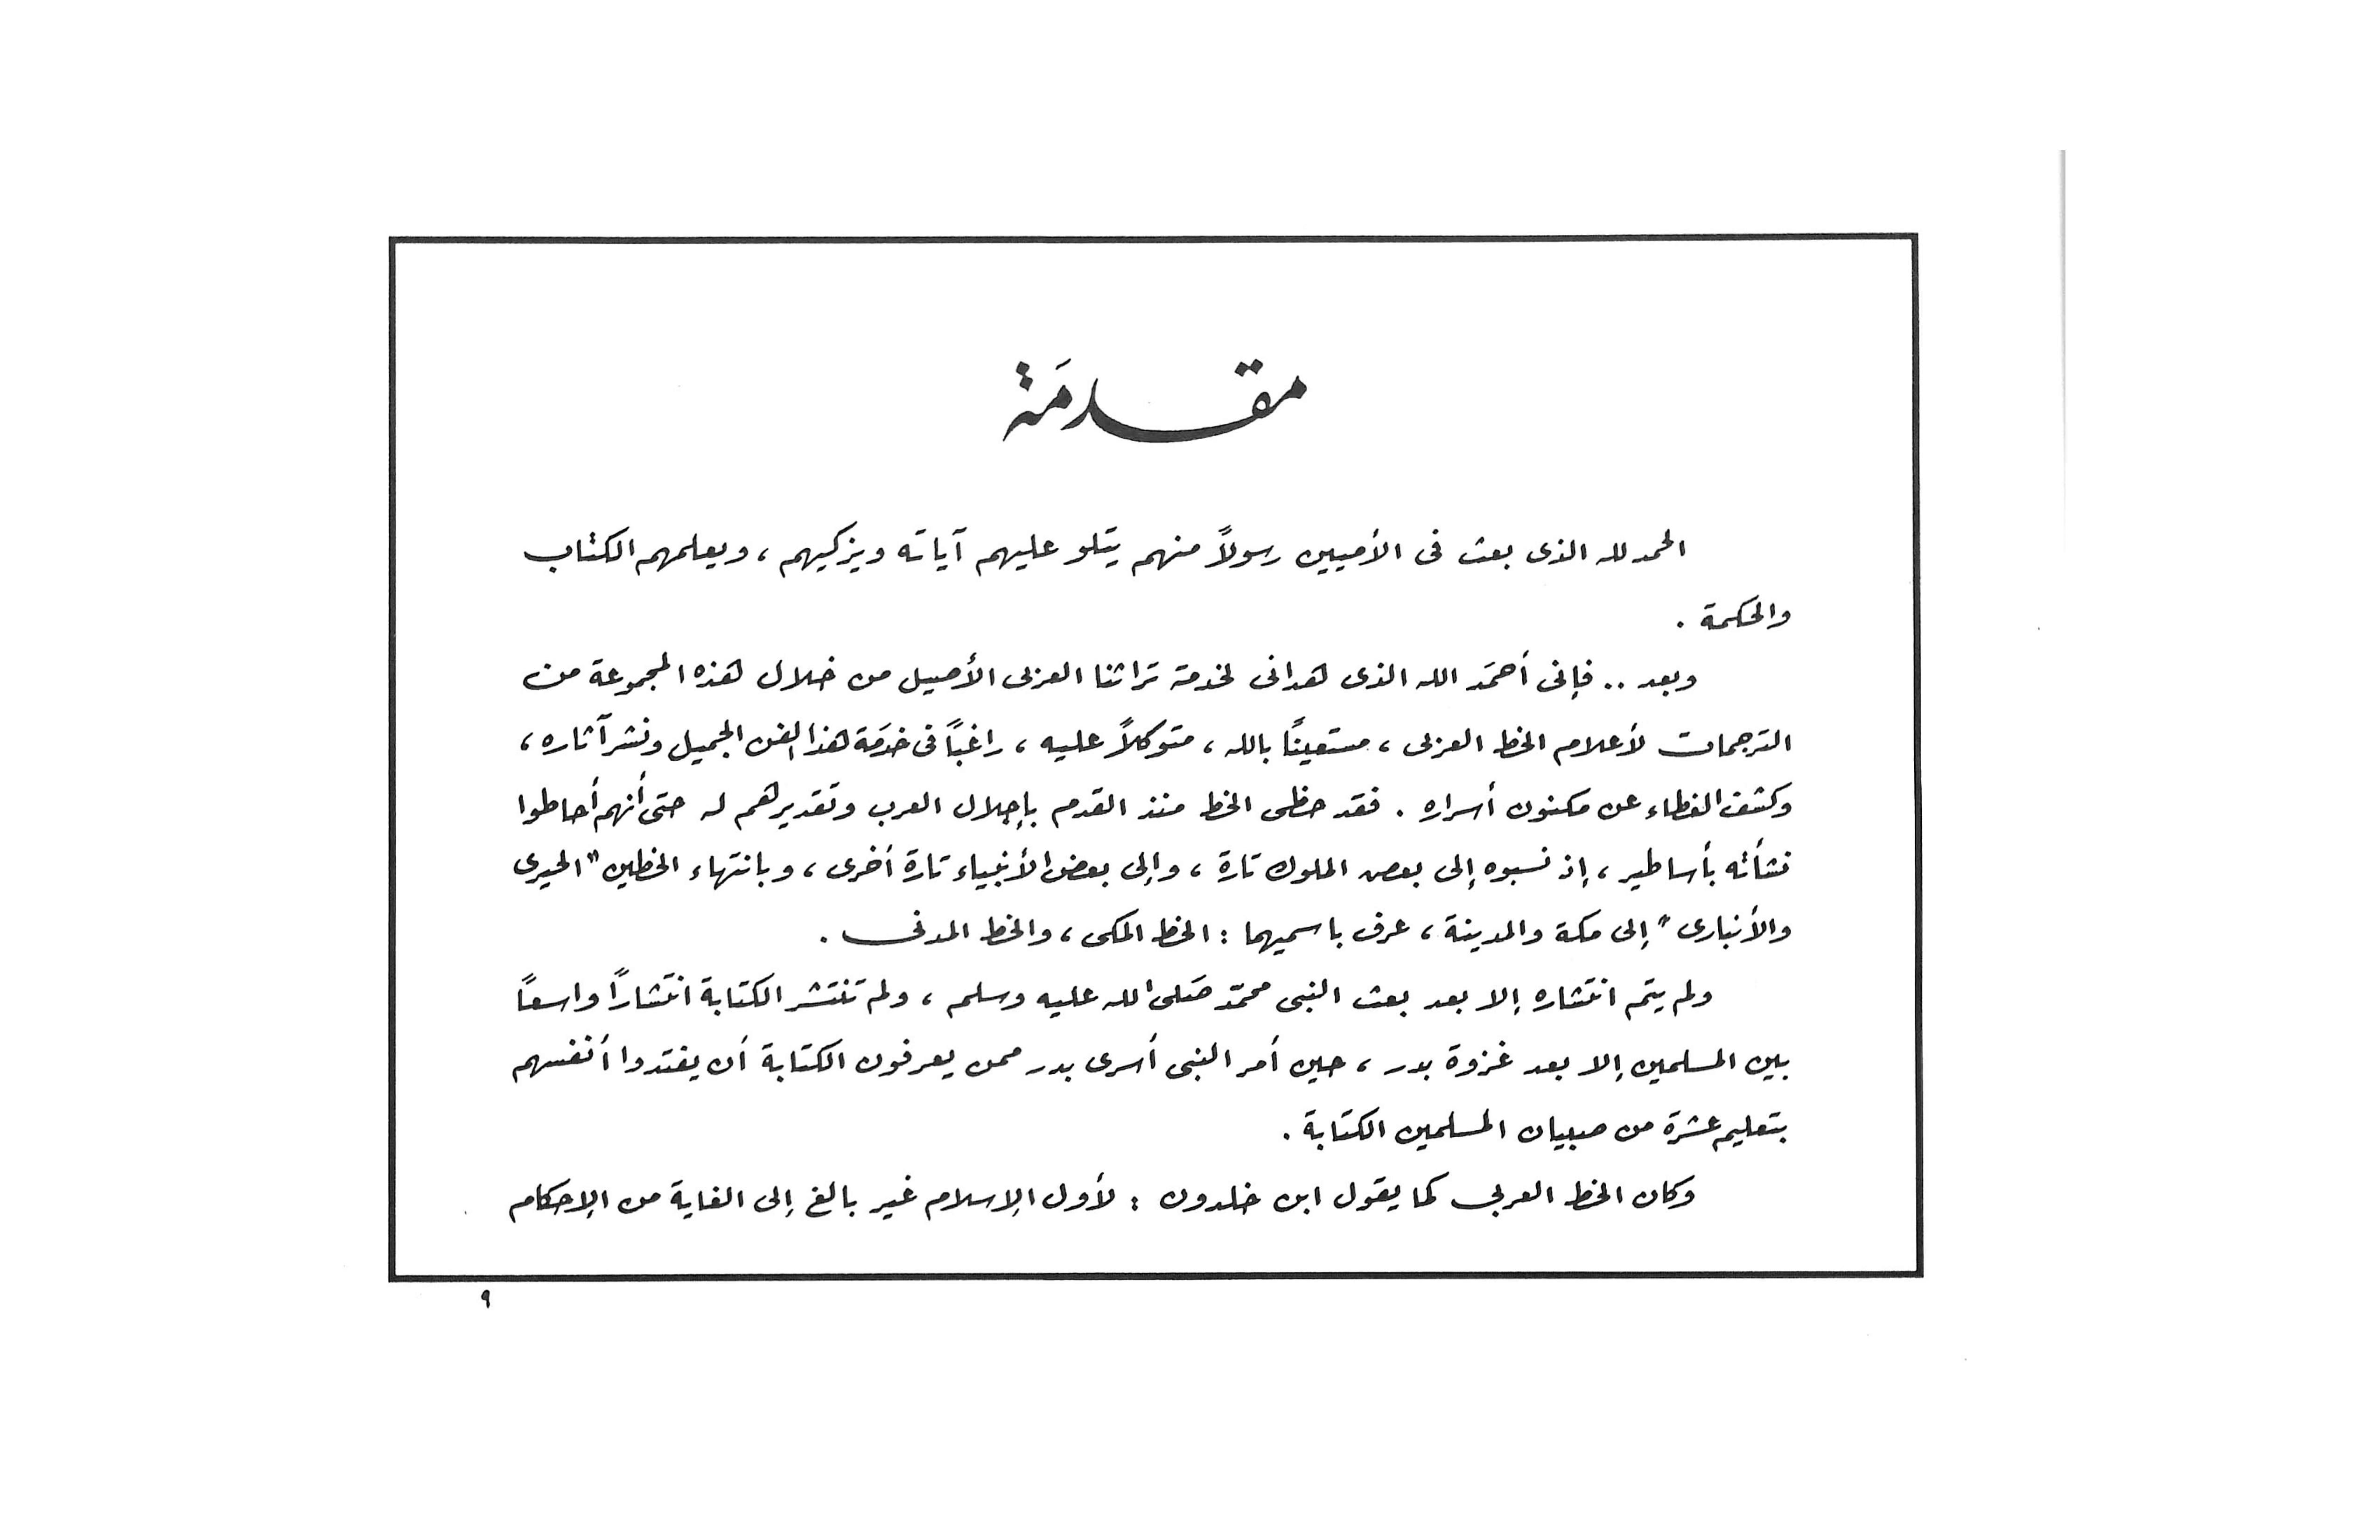 مقدمَة
الحمد لله الذى بعث فى الأميين رسولاً منهم يتلو عليهم آياته ويزكيهم ، ويعلمهم الكتاب
والحكمة .
وبعد .. فإنى أحمَد الله الذى هدانى لخدمة تراثنا العربى الأصيل من خلال هذه المجموعة من
الترجمات لأعلام الخط العربى ، مستعينًا بالله ، متوكلاً عليه ، راغبًا فى خدمَة هذا الفن الجميل ونشر آثاره ،
وكشف الغطاء عن مكنون أسراره . فقد حظى الخط منذ القدم بإجلال العرب وتقديرهم له حتى أنهم أحاطوا
نشأته بأساطير ، إذ نسبوه إلى بعض الملوك تارة ، وإلى بعض الأنبياء تارة أخرى ، وبانتهاء الخطين " الحيرى
والأنبارى " إلى مكة والمدينة ، عرف باسميهما : الخط المكى ، والخط المدنى .
ولم يتم انتشاره إلا بعد بعث النبى محمّد صَلى الله عليه وسلم ، ولم تنتشر الكتابة انتشارًا واسعًا
بين المسلمين إلا بعد غزوة بدر ، حين أمر النبى أسرى بدر ممن يعرفون الكتابة أن يفتدوا أنفسهم
بتعليم عشرة من صبيان المسلمين الكتابة .
وكان الخط العربى كما يقول ابن خلدون : لأول الإسلام غير بالغ إلى الغاية من الإحكام
٩